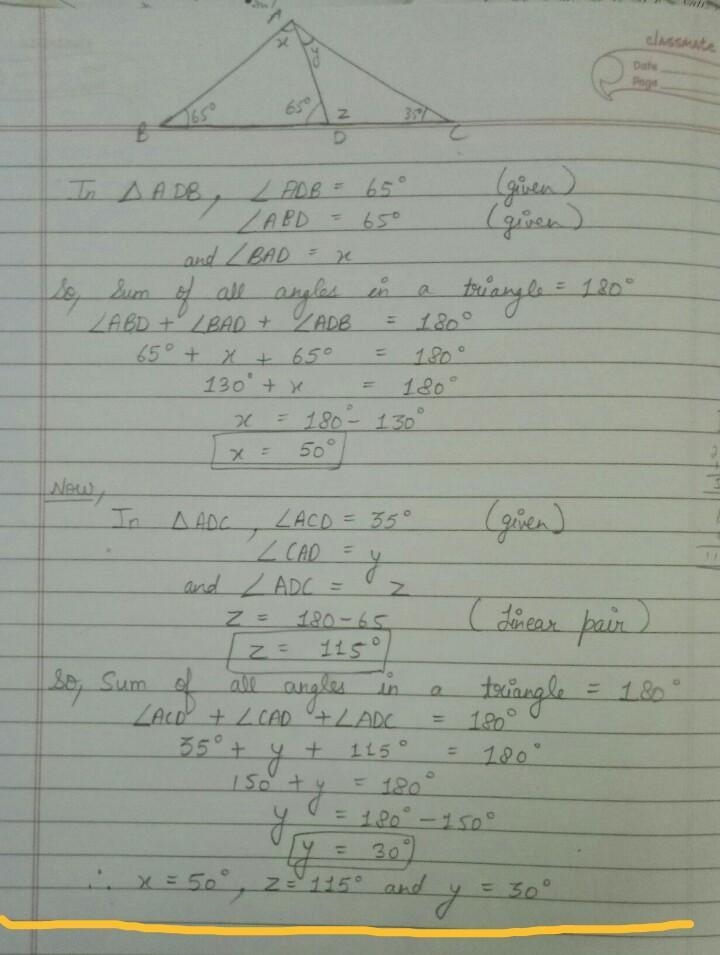 classmate
Date
Page
A
x y
65° 65° z 35°
B D C
In △ADB, ∠ADB = 65° (given)
∠ABD = 65° (given)
and ∠BAD = x
So, Sum of all angles in a triangle = 180°
∠ABD + ∠BAD + ∠ADB = 180°
65° + x + 65° = 180°
130° + x = 180°
x = 180° - 130°
x = 50°
Now,
In △ADC, ∠ACD = 35° (given)
∠CAD = y
and ∠ADC = z
z = 180-65 (Linear pair)
z = 115°
So, Sum of all angles in a triangle = 180°
∠ACD + ∠CAD + ∠ADC = 180°
35° + y + 115° = 180°
150 + y = 180°
y = 180° - 150°
y = 30°
∴ x = 50°, z = 115° and y = 30°